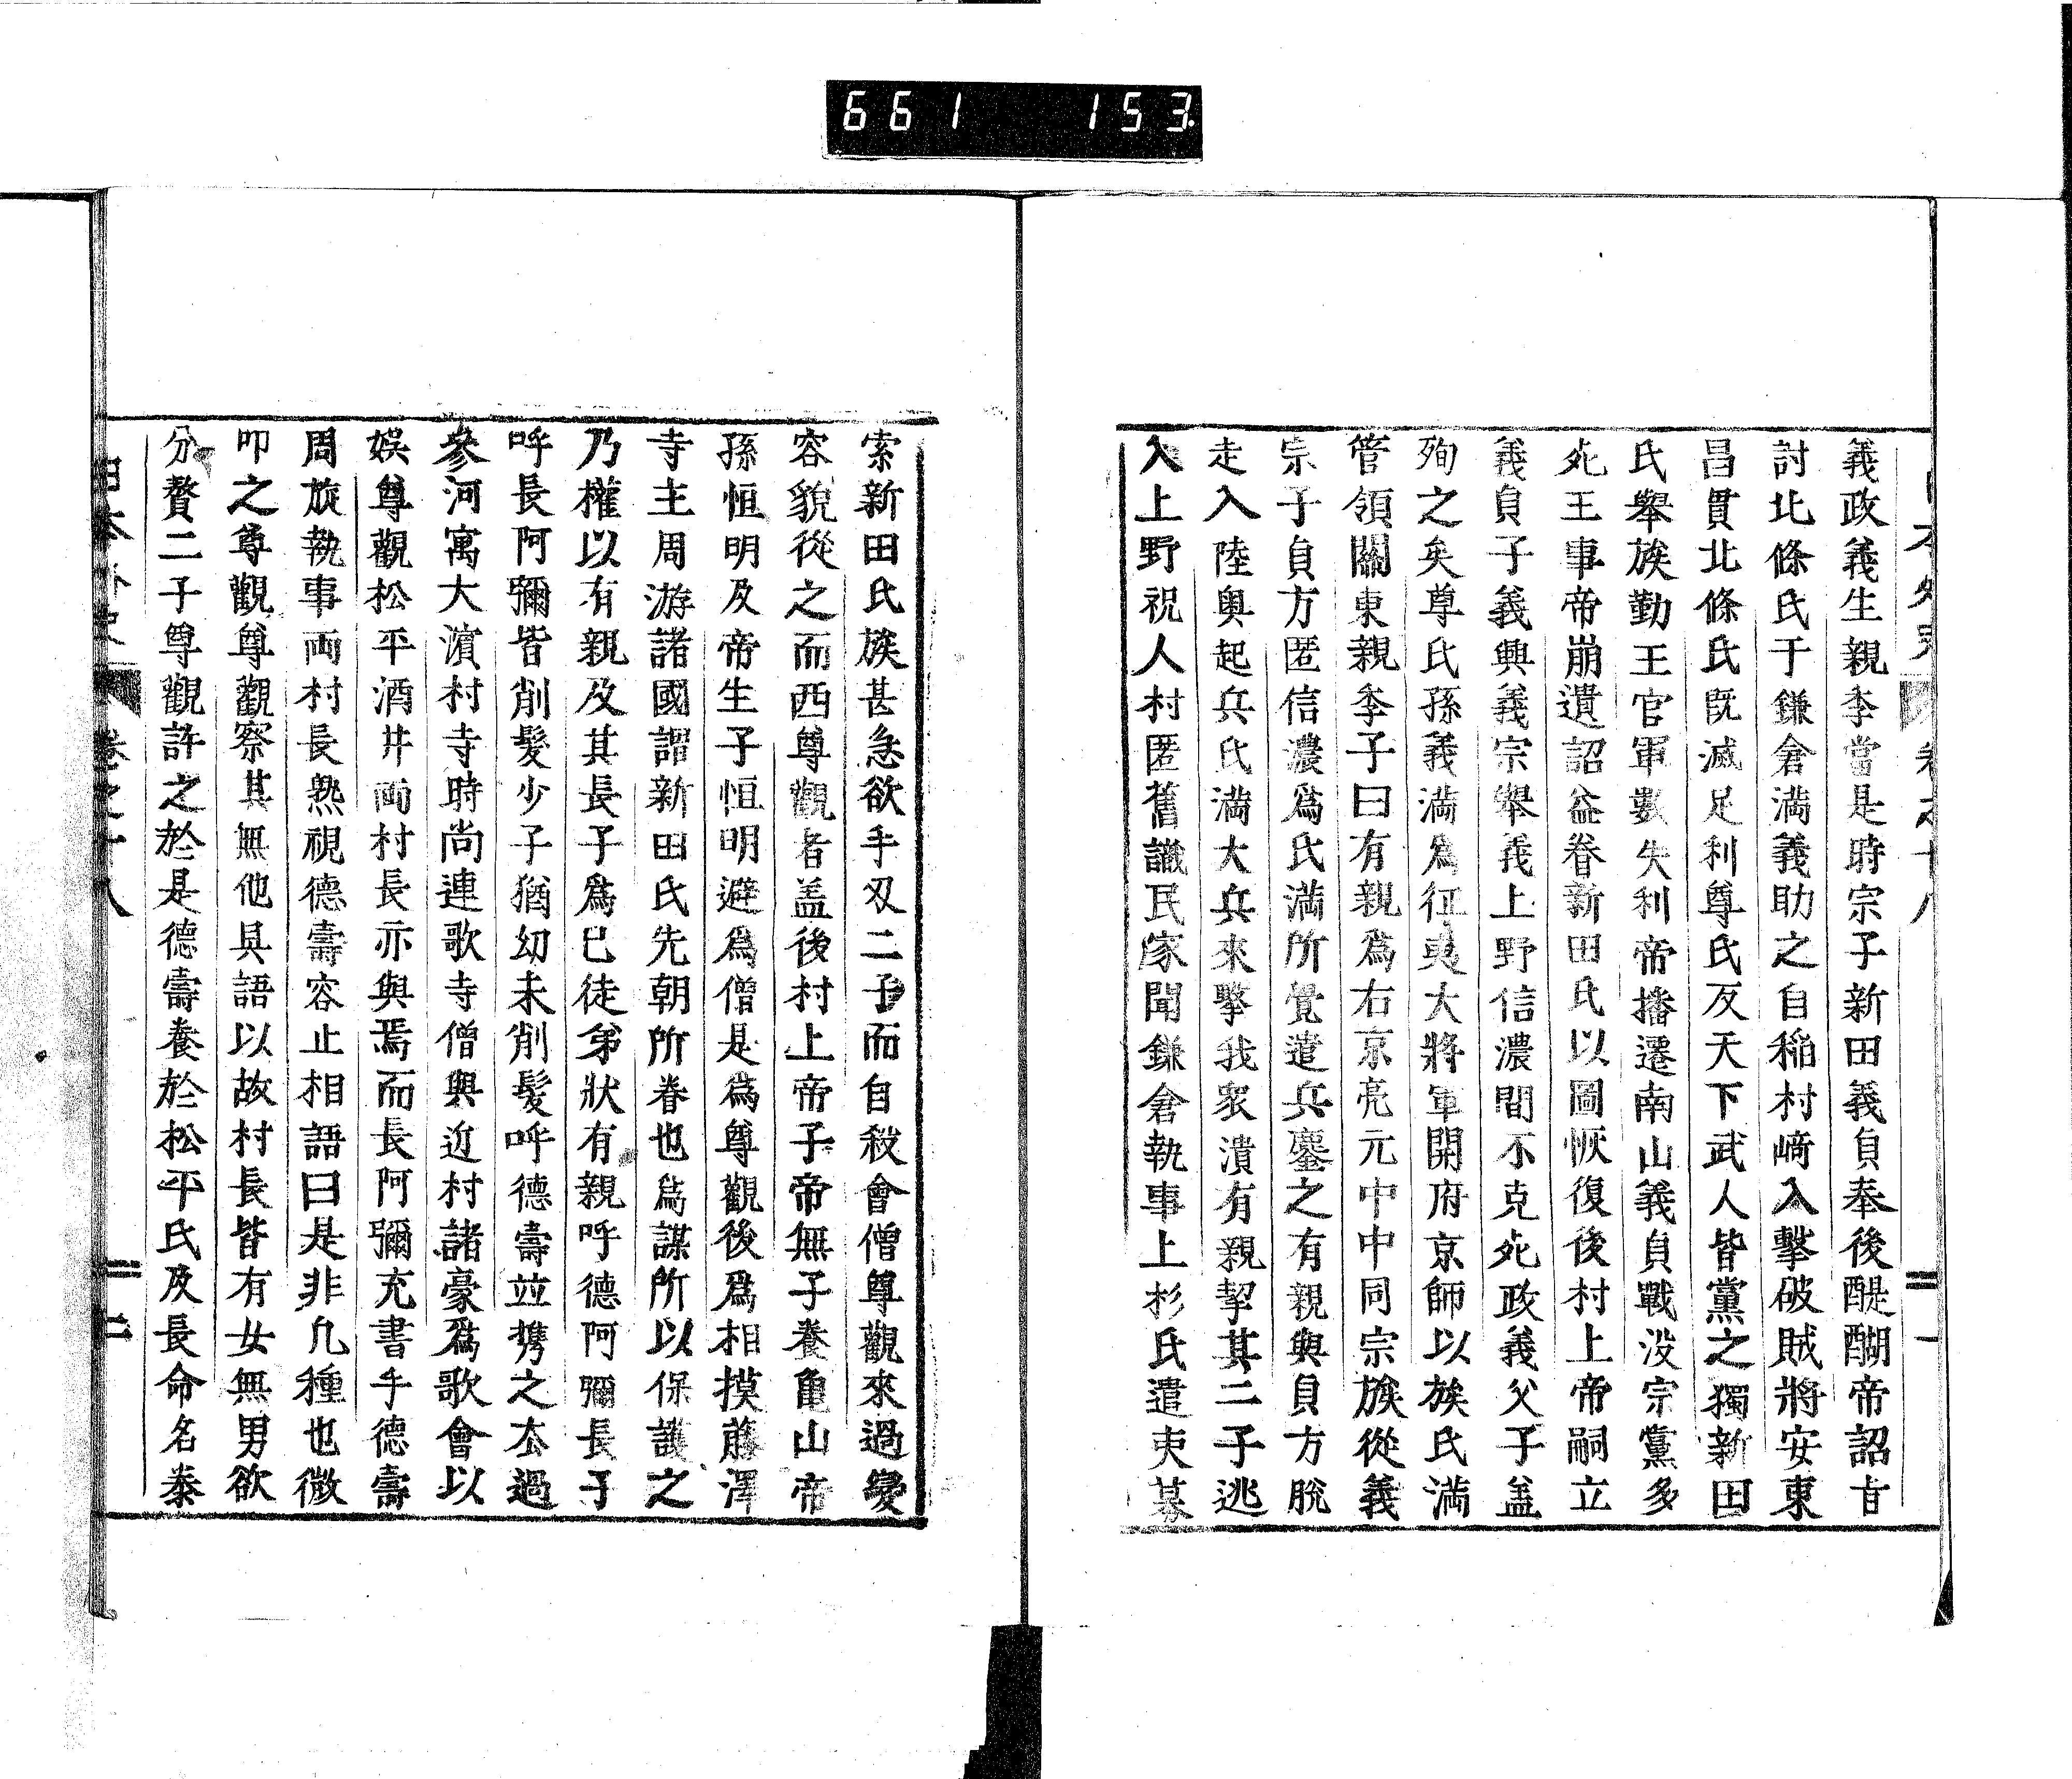 661 153
義政義生親李當是時宗子新田義貞奉後醍醐帝詔旨
討北條氏于鎌倉滿義助之自稲村﨑入擊破賊將安東
昌貫北條氏既滅足利尊氏反天下武人皆黨之獨新田
氏舉族勤王官軍數失利帝播遷南山義貞戰沒宗黨多
死王事帝崩遺詔益眷新田氏以圖恢復後村上帝嗣立
義貞子義興義宗舉義上野信濃間不克死政義父子盖
殉之矣尊氏孫義滿爲征夷大將軍開府京師以族氏滿
管領關東親季子曰有親爲右京亮元中中同宗族從義
宗子貞方匿信濃爲氏滿所覺遣兵鏖之有親與貞方脫
走入陸奧起兵氏滿大兵來擊我衆潰有親挈其二子逃
入上野祝人村匿舊識民家聞鎌倉執事上杉氏遣吏募
索新田氏族甚急欲手刄二子而自殺會僧尊觀來過變
容貌從之而西尊觀者盖後村上帝子帝無子養亀山帝
孫恒明及帝生子恒明避爲僧是爲尊觀後爲相摸藤澤
寺主周游諸國謂新田氏先朝所眷也爲謀所以保護之
乃權以有親及其長子爲己徒弟狀有親呼德阿彌長子
呼長阿彌皆削髮少子猶幼未削髮呼德壽竝携之去過
參河寓大濵村寺時尚連歌寺僧與近村諸豪爲歌會以
娯尊觀松平酒井兩村長亦與焉而長阿彌充書手德壽
周旋執事両村長熟視德壽容止相語曰是非凡種也微
叩之尊觀尊觀察其無他具語以故村長皆有女無男欲
分贅二子尊觀許之於是德壽養於松平氏及長命名泰
日本外史 卷之十八 二